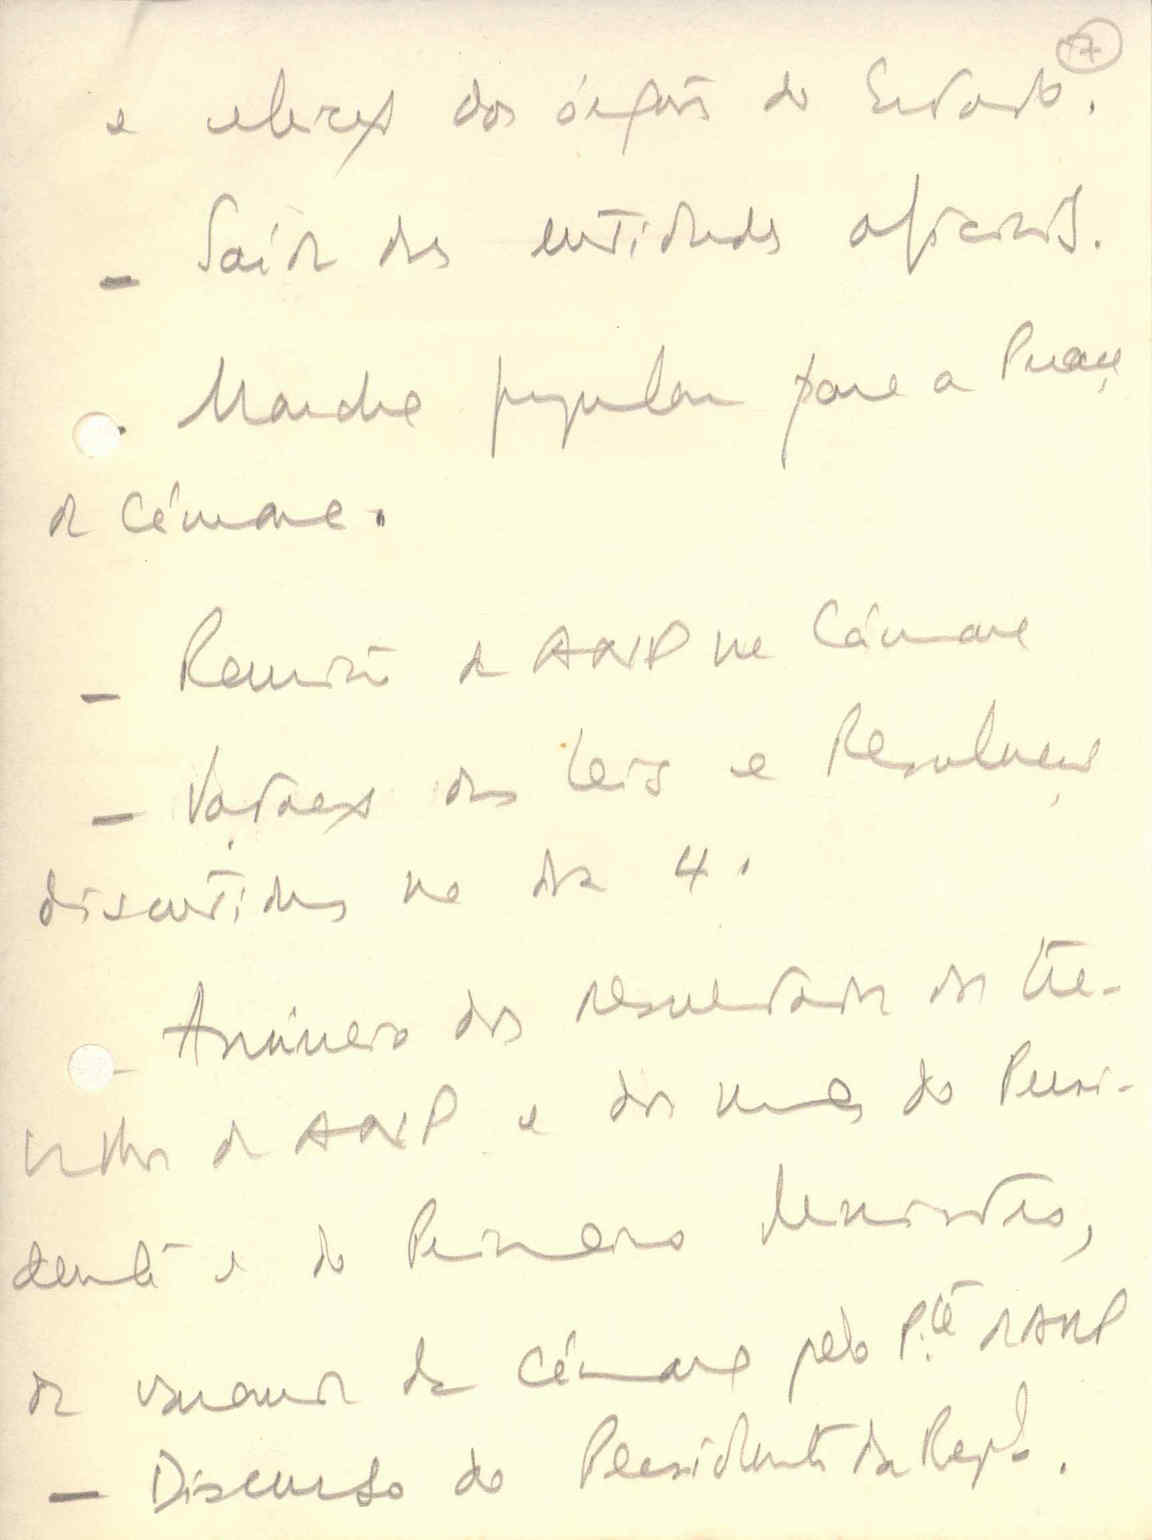 17
e eleições dos órgãos do Estado.
- Saída das entidades oficiais.
. Marcha popular para a Praça
da Câmara.
- Reunião da ANP na Câmara
- Votações das Leis e Resoluções
discutidas no dia 4.
- Anúncio dos resultados dos tra-
balhos da ANP e dos nomes do Presi-
dente e do Primeiro Ministro,
da varanda da Câmara pelo P.te da ANP
- Discurso do Presidente da Repb.